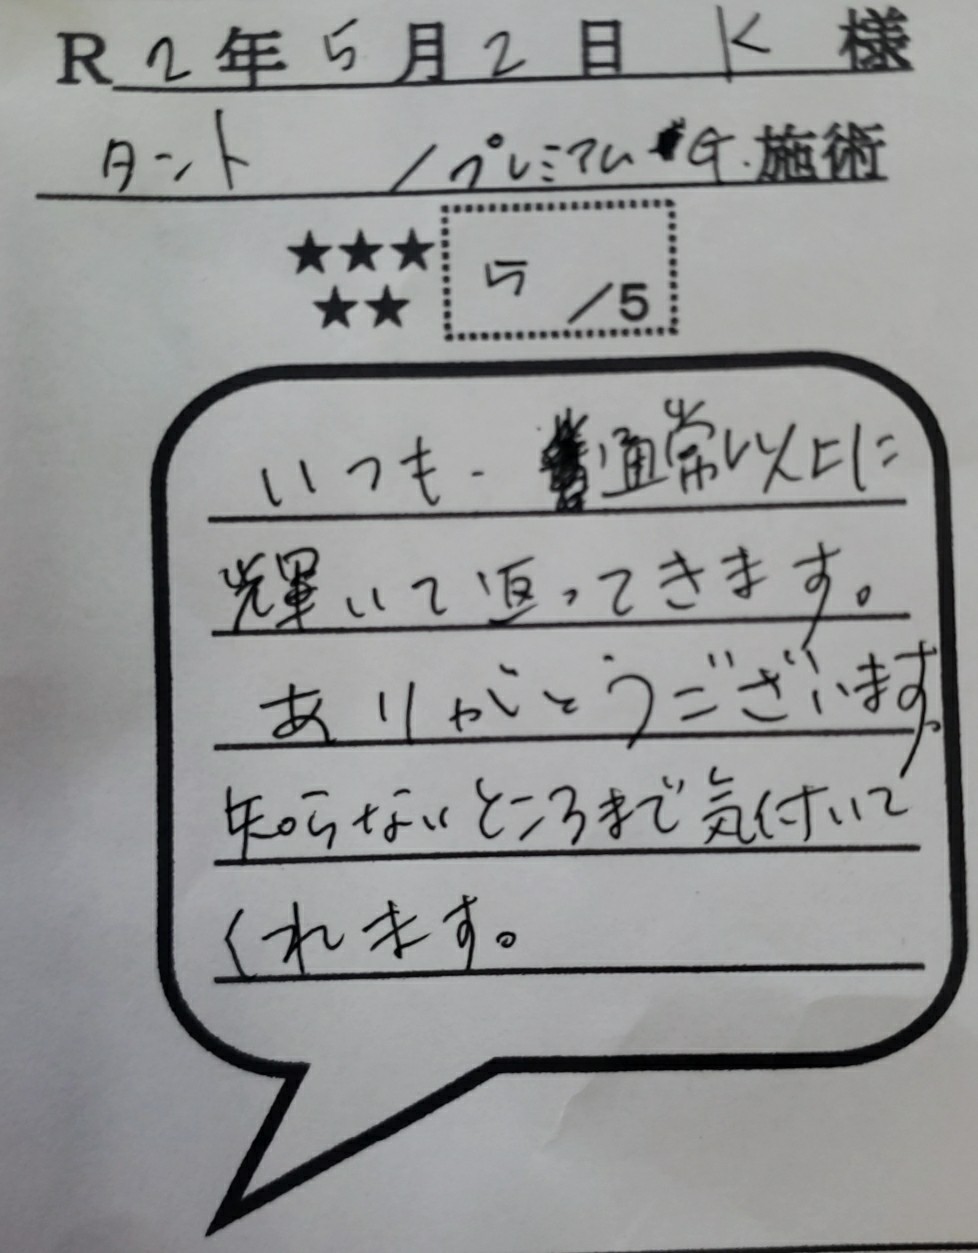 R2年5月2日 K様
タント /プレミアムG.施術
★★★
★★
5/5
いつも、通常以上に
輝いて返ってきます。
ありがとうございます。
知らないところまで気付いて
くれます。